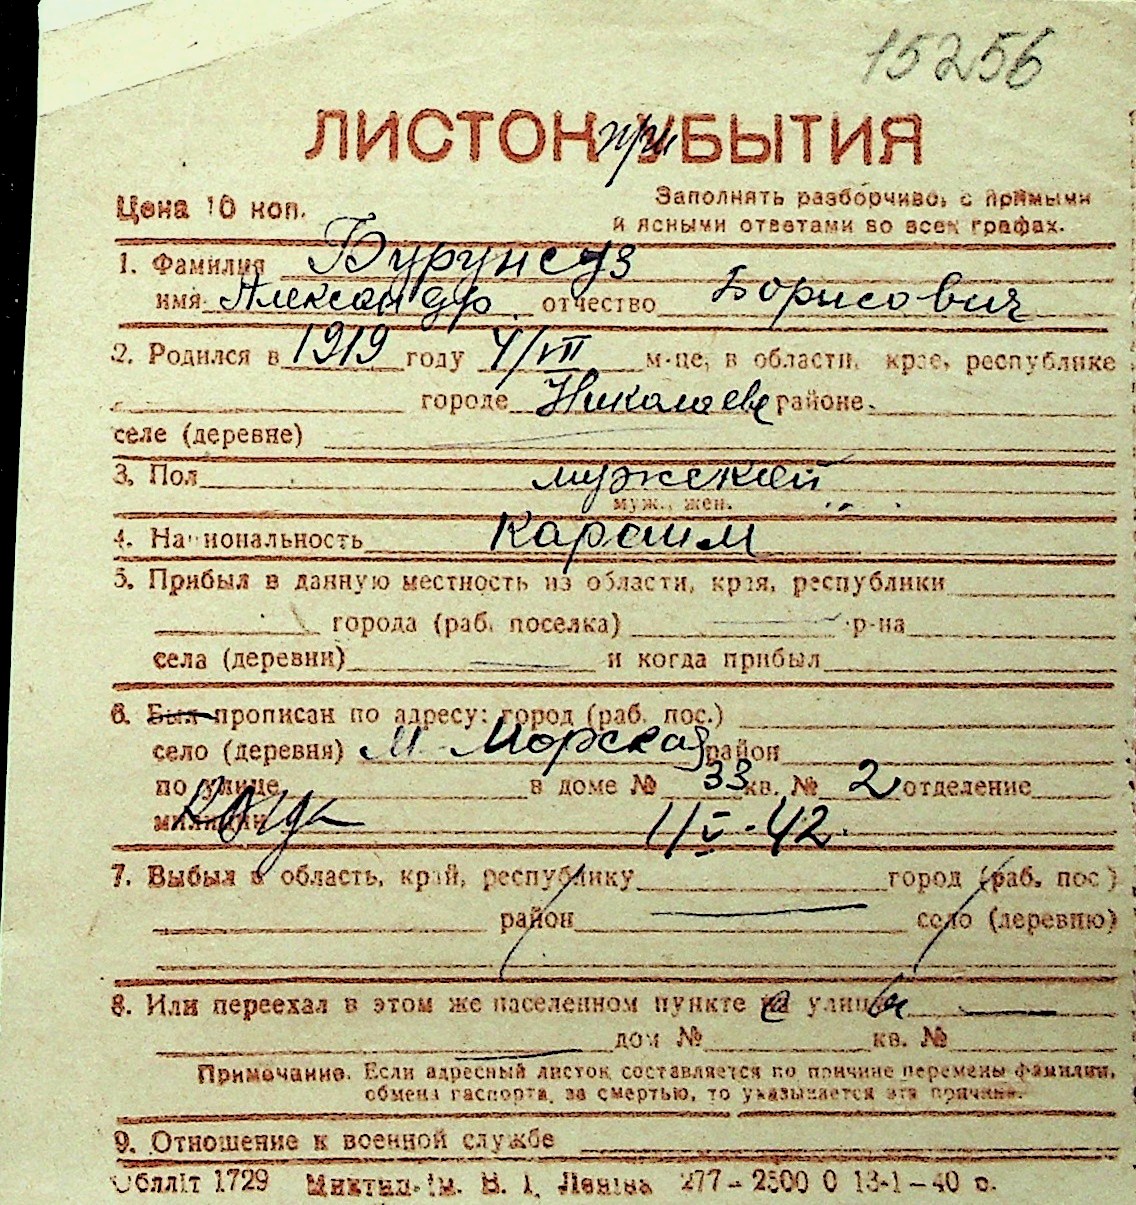 15256
ЛИСТОК при УБЫТИЯ
Цена 10 коп.
Заполнять разборчиво, с прямыми
и ясными ответами во всех графах.
1. Фамилия Бурунсуз
имя Александр отчество Борисович
2. Родился в 1919 году 4/VII м-це, в области, крае, республике
городе Николаеве районе
селе (деревне)
3. Пол мужской
муж., жен.
4. Национальность Караим
5. Прибыл в данную местность из области, края, республики
города (раб. поселка) р-на
села (деревни) и когда прибыл
6. Был прописан по адресу: город (раб. пос.)
село (деревня) М. Морская район
по улице в доме № 33 кв. № 2 отделение
милиции когда 1/V-42.
7. Выбыл в область, край, республику город (раб. пос)
район село (деревню)
8. Или переехал в этом же населенном пункте с улицы
дом № кв. №
Примечание. Если адресный листок составляется по причине перемены фамилии,
обмена паспорта, за смертью, то указывается эта причина.
9. Отношение к военной службе
Обллiт 1729 ім. В. І. Леніна 277 - 2500 0 13-1-40 с.